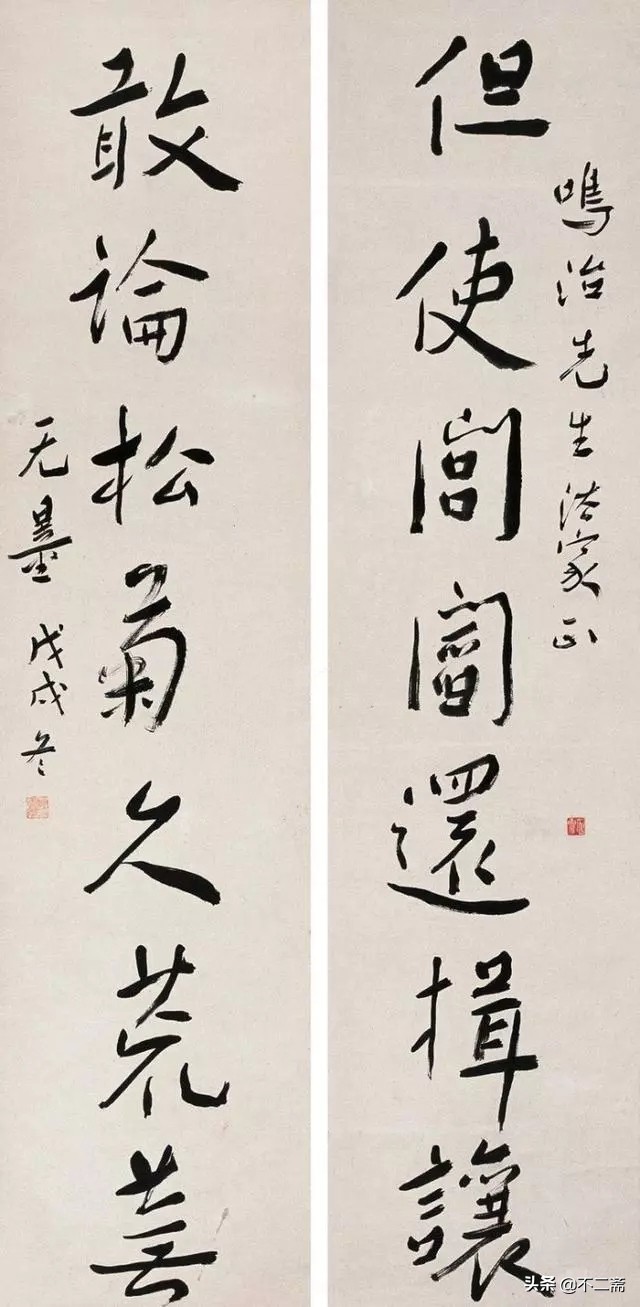 鳴治先生法家正
但使閭閻還揖讓
敢論松菊久荒蕪
无量 戊戌冬
头条 @不二斋